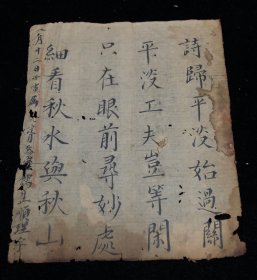 詩歸平淡始過關
平淡工夫豈等閑
只在眼前尋妙處
細看秋水與秋山
月十二日